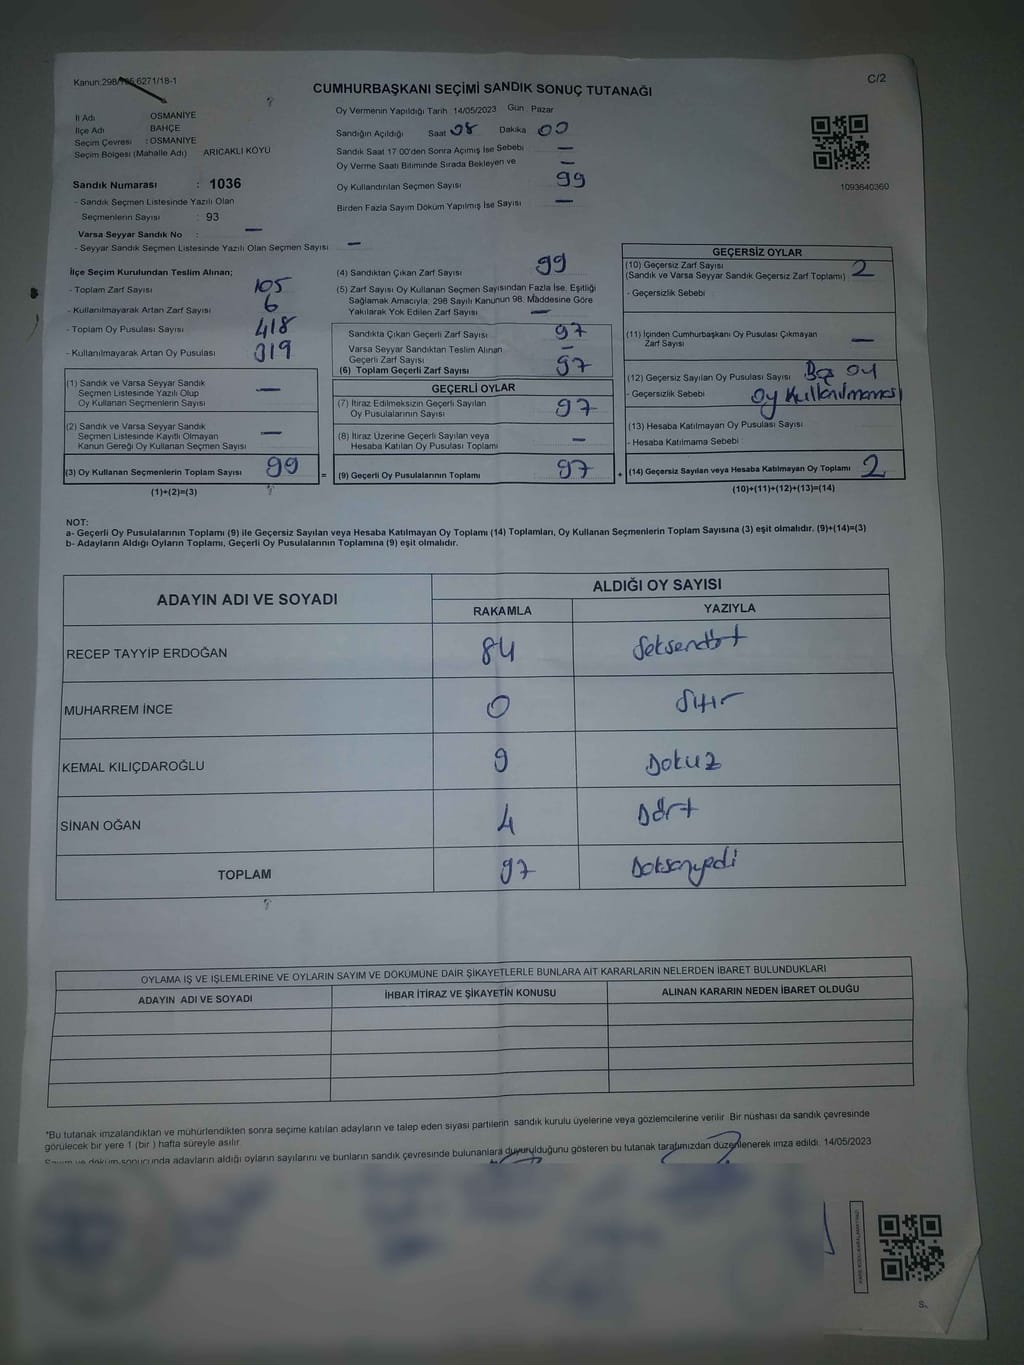 Kanun:298/ 6271/18-1
C/2
CUMHURBAŞKANI SEÇİMİ SANDIK SONUÇ TUTANAĞI
İl Adı OSMANİYE
İlçe Adı BAHÇE
Seçim Çevresi : OSMANİYE
Seçim Bölgesi (Mahalle Adı) ARICAKLI KÖYÜ
Sandık Numarası : 1036
- Sandık Seçmen Listesinde Yazılı Olan
Seçmenlerin Sayısı : 93
Varsa Seyyar Sandık No : —
- Seyyar Sandık Seçmen Listesinde Yazılı Olan Seçmen Sayısı —
Oy Vermenin Yapıldığı Tarih :14/05/2023 Gün : Pazar
Sandığın Açıldığı Saat 08 Dakika 00
Sandık Saat 17.00'den Sonra Açımış İse Sebebi —
Oy Verme Saati Bitiminde Sırada Bekleyen ve —
Oy Kullandırılan Seçmen Sayısı 99
Birden Fazla Sayım Döküm Yapılmış İse Sayısı —
1093640360
İlçe Seçim Kurulundan Teslim Alınan;
- Toplam Zarf Sayısı 105
- Kullanılmayarak Artan Zarf Sayısı 6
- Toplam Oy Pusulası Sayısı 418
- Kullanılmayarak Artan Oy Pusulası 319
(1) Sandık ve Varsa Seyyar Sandık
Seçmen Listesinde Yazılı Olup
Oy Kullanan Seçmenlerin Sayısı —
(2) Sandık ve Varsa Seyyar Sandık
Seçmen Listesinde Kayıtlı Olmayan
Kanun Gereği Oy Kullanan Seçmen Sayısı —
(3) Oy Kullanan Seçmenlerin Toplam Sayısı 99 =
(1)+(2)=(3)
(4) Sandıktan Çıkan Zarf Sayısı 99
(5) Zarf Sayısı Oy Kullanan Seçmen Sayısından Fazla İse, Eşitliği
Sağlamak Amacıyla; 298 Sayılı Kanunun 98. Maddesine Göre
Yakılarak Yok Edilen Zarf Sayısı —
Sandıkta Çıkan Geçerli Zarf Sayısı 97
Varsa Seyyar Sandıktan Teslim Alınan
Geçerli Zarf Sayısı —
(6) Toplam Geçerli Zarf Sayısı 97
GEÇERLİ OYLAR
(7) İtiraz Edilmeksizin Geçerli Sayılan
Oy Pusulalarının Sayısı 97
(8) İtiraz Üzerine Geçerli Sayılan veya
Hesaba Katılan Oy Pusulası Toplamı —
(9) Geçerli Oy Pusulalarının Toplamı 97 +
GEÇERSİZ OYLAR
(10) Geçersiz Zarf Sayısı
(Sandık ve Varsa Seyyar Sandık Geçersiz Zarf Toplamı) 2
- Geçersizlik Sebebi
(11) İçinden Cumhurbaşkanı Oy Pusulası Çıkmayan
Zarf Sayısı —
(12) Geçersiz Sayılan Oy Pusulası Sayısı Boş oy
- Geçersizlik Sebebi oy Kullanılmaması
(13) Hesaba Katılmayan Oy Pusulası Sayısı
- Hesaba Katılmama Sebebi
(14) Geçersiz Sayılan veya Hesaba Katılmayan Oy Toplamı 2
(10)+(11)+(12)+(13)=(14)
NOT:
a- Geçerli Oy Pusulalarının Toplamı (9) ile Geçersiz Sayılan veya Hesaba Katılmayan Oy Toplamı (14) Toplamları, Oy Kullanan Seçmenlerin Toplam Sayısına (3) eşit olmalıdır. (9)+(14)=(3)
b- Adayların Aldığı Oyların Toplamı, Geçerli Oy Pusulalarının Toplamına (9) eşit olmalıdır.
ADAYIN ADI VE SOYADI
ALDIĞI OY SAYISI
RAKAMLA YAZIYLA
RECEP TAYYİP ERDOĞAN 84 Seksendört
MUHARREM İNCE 0 Sıfır
KEMAL KILIÇDAROĞLU 9 Dokuz
SİNAN OĞAN 4 Dört
TOPLAM 97 Doksanyedi
OYLAMA İŞ VE İŞLEMLERİNE VE OYLARIN SAYIM VE DÖKÜMÜNE DAİR ŞİKAYETLERLE BUNLARA AİT KARARLARIN NELERDEN İBARET BULUNDUKLARI
ADAYIN ADI VE SOYADI İHBAR İTİRAZ VE ŞİKAYETİN KONUSU ALINAN KARARIN NEDEN İBARET OLDUĞU
*Bu tutanak imzalandıktan ve mühürlendikten sonra seçime katılan adayların ve talep eden siyasi partilerin sandık kurulu üyelerine veya gözlemcilerine verilir. Bir nüshası da sandık çevresinde
görülecek bir yere 1 (bir ) hafta süreyle asılır.
Sayım ve döküm sonucunda adayların aldığı oyların sayılarını ve bunların sandık çevresinde bulunanlara duyurulduğunu gösteren bu tutanak tarafımızdan düzenlenerek imza edildi. 14/05/2023